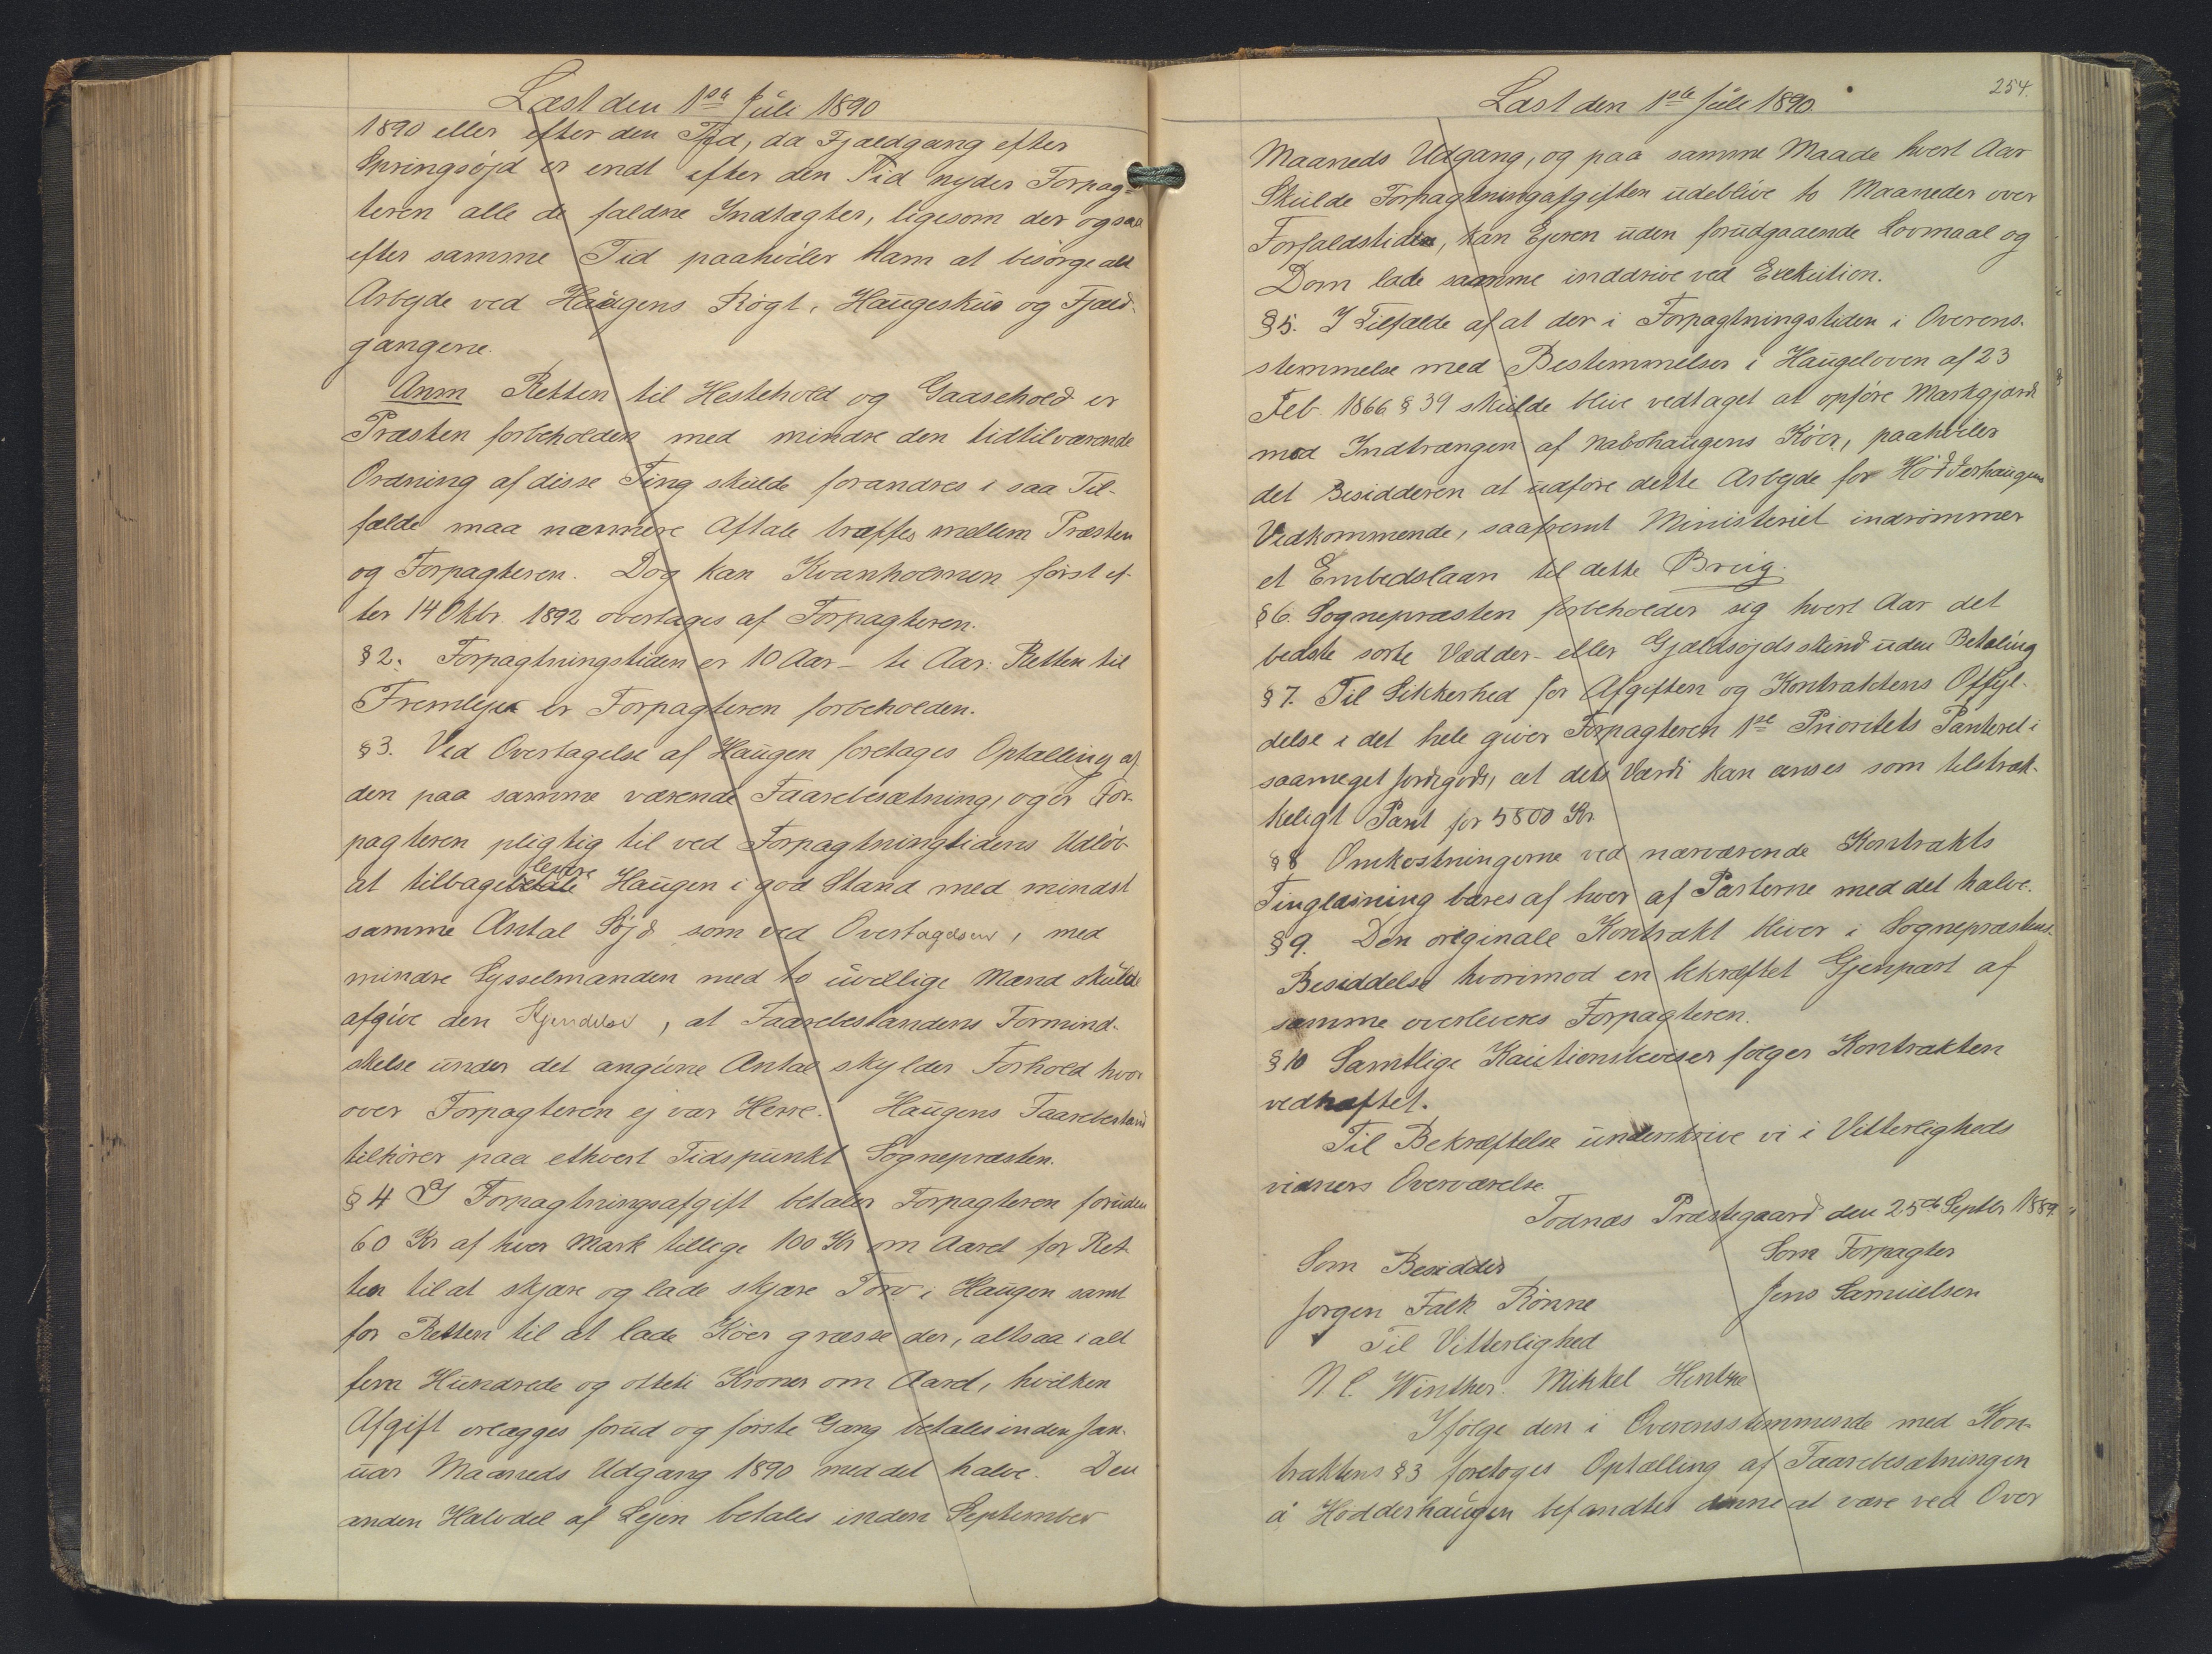 Læst den 1ste Juli 1890
1890 eller efter den Tid, da Fjældgang efter
Springsøjd er endt efter den Tid nyder Forpag=
teren alle de faldne Indtægter, ligesom der ogsaa
efter samme Tid paahviler ham at besørge alt
Arbejde ved Haugens Røgt, Haugeskur og Fjæld-
gangene.
Anm Retten til Hestehold og Gaasehold er
Præsten forbeholden med mindre den tidtilværende
Ordning af disse Ting skulde forandres i saa Til-
fælde maa nærmere Aftale træffes mellem Præsten
og Forpagteren. Dog kan Kvanholmen først ef-
ter 14 Oktbr. 1892 overtages af Forpagteren.
§ 2. Forpagtningstiden er 10 Aar - ti Aar. Retten til
Fremleje er Forpagteren forbeholden.
§ 3. Ved Overtagelse af Haugen foretages Optælling af
den paa samme værende Faarebesætning, og er For-
pagteren pligtig til ved Forpagtningtidens Udløb
at tilbagelevere Haugen i god Stand med mindst
samme Antal Søjd som ved Overtagelsen, med
mindre Sysselmanden med to uvillige Mænd skulde
afgive den Kjendelse, at Faarebestandens Formind-
skelse under det angivne Antal skyldes Forhold hvor
over Forpagteren ej var Herre. Haugens Faarebestand
tilhører paa ethvert Tidspunkt Sognepræsten.
§ 4 I Forpagtningsafgift betaler Forpagteren foruden
60 Kr af hver Mark tillige 100 Kr om Aaret for Ret-
ten til at skjære og lade skjære Torv i Haugen samt
for Retten til at lade Køer græsse der, altsaa i alt
fem Hundrede og otteti Kroner om Aaret, hvilken
Afgift erlægges forud og første Gang betales inden Jan-
uar Maaneds Udgang 1890 med det halve. Den
anden Halvdel af Lejen betales inden September
254.
Læst den 1ste Juli 1890.
Maaneds Udgang, og paa samme Maade hvert Aar
Skulde Forpagtningafgiften udeblive to Maaneder over
Forfaldstiden, kan Ejeren uden forudgaaende Lovmaal og
Dom lade samme inddrive ved Exekution.
§ 5. I Tilfælde af at der i Forpagtningstiden i Overens-
stemmelse med Bestemmelser i Haugeloven af 23
Feb. 1866 § 39 skulde blive vedtaget at opføre Markgjærde
mod Indtrængen af Nabohaugens Køer, paahviler
det Besidderen at udføre dette Arbejde for Hødderhaugens
Vedkommende, saafremt Ministeriet indrømmer
et Embedslaan til dette Brug.
§ 6. Sognepræsten forbeholder sig hvert Aar det
bedste sorte Vædder- eller Gjældsøjdsskind uden Betaling
§ 7. Til Sikkerhed for Afgiften og Kontraktens Opfyl-
delse i det hele giver Forpagteren 1ste Prioritets Panteret i
saameget Jordegods, at dets Værdi kan anses som tilstræk-
keligt Pant for 5800 Kr
§ 8 Omkostningerne ved nærværende Kontrakts
Tinglæsning bæres af hver af Parterne med det halve.
§ 9. Den originale Kontrakt bliver i Sognepræstens
Besiddelse hvorimod en bekræftet Gjenpart af
samme overleveres Forpagteren.
§ 10 Samtlige Kautionsbeviser følger Kontrakten
vedhæftet.
Til Bekræftelse underskrive vi i Vitterligheds
vidners Overværelse.
Todnæs Præstegaard den 25de Septbr 1889
Som Besidder
Som Forpagter
Jørgen Falk Rønne
Jens Samuelsen
Til Vitterlighed
N C. Winther. Mikkel Hentze
Ifølge den i Overensstemmende med Kon-
traktens § 3 foretoges Optælling af Faarebesætningen
å Hodderhaugen befandtes denne at være ved Over